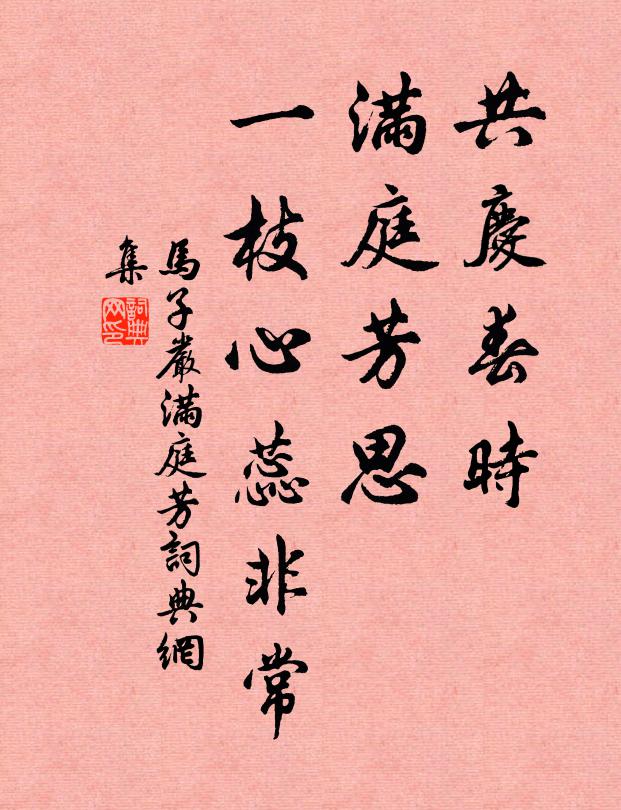 共慶春時
滿庭芳思
一枝心蕊非常
馬子嚴滿庭芳詞典網
集
詞典網印